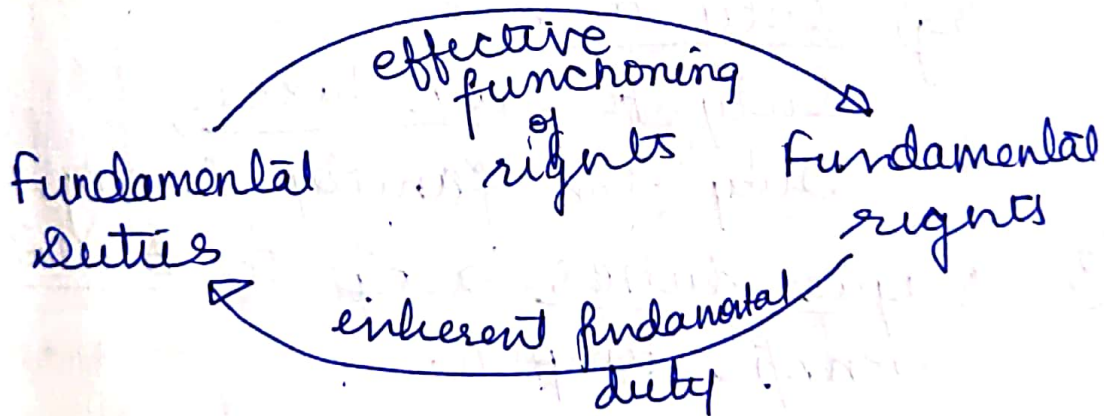 effective
functioning
of
rights
Fundamental
Duties
Fundamental
rights
inherent fundamental
duty.